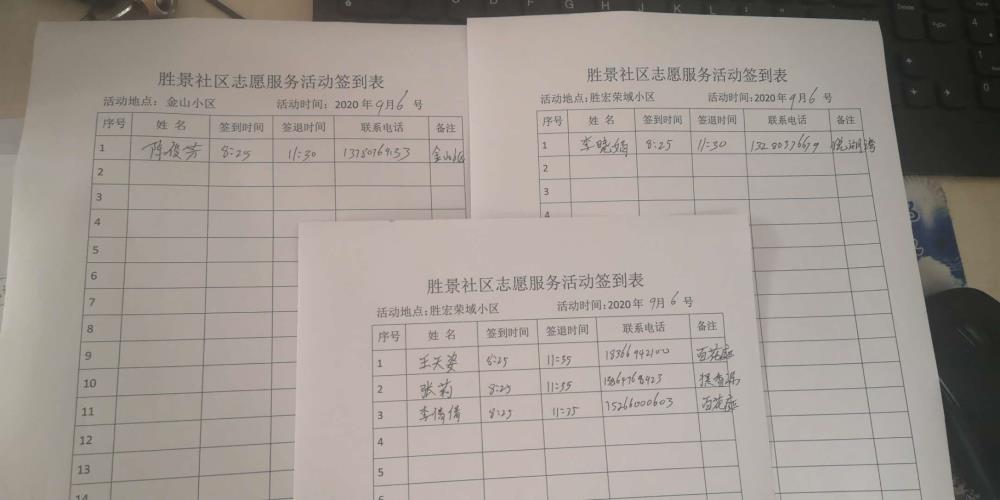 胜景社区志愿服务活动签到表
活动地点： 金山小区 活动时间：2020年9月6号
序号 姓名 签到时间 签退时间 联系电话 备注
1 陈俊芳 8:25 11:30
2
3
4
5
6
7
8
9
10
11
12
13
14
胜景社区志愿服务活动签到表
活动地点：胜宏荣域小区 活动时间：2020年9月6号
序号 姓名 签到时间 签退时间 联系电话 备注
1 李晓娟 8:25 11:30
2
3
4
胜景社区志愿服务活动签到表
活动地点：胜宏荣域小区 活动时间：2020年9月6号
序号 姓名 签到时间 签退时间 联系电话 备注
1 王天姿 8:25 11:35 18366942100 百花庭
2 张莉 8:25 11:35
3 李倩倩 8:25 11:35 15266000603 百花庭
4
5
6